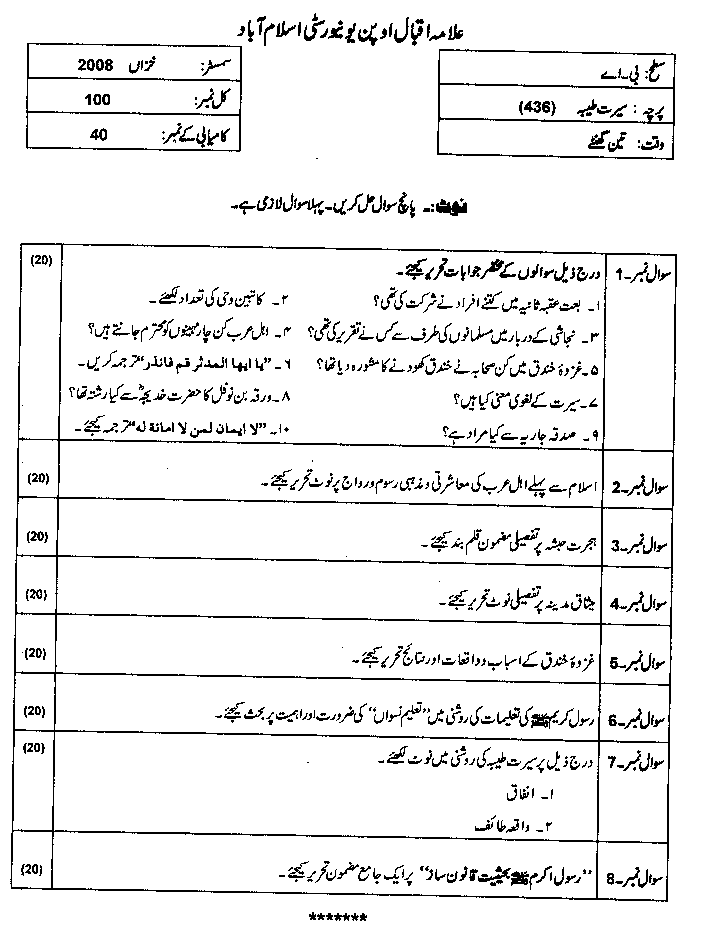 علامہ اقبال اوپن یونیورسٹی اسلام آباد
سطح: بی۔اے
پرچہ: سیرت طیبہ (436)
وقت: تین گھنٹے
سمسٹر: خزاں 2008
کل نمبر: 100
کامیابی کے نمبر: 40
نوٹ:۔ پانچ سوال حل کریں۔ پہلا سوال لازمی ہے۔
سوال نمبر۔1 درج ذیل سوالوں کے مختصر جوابات تحریر کیجئے۔ (20)
۱۔ بیعت عقبہ ثانیہ میں کتنے افراد نے شرکت کی تھی؟ ۲۔ کاتبین وحی کی تعداد لکھئے۔
۳۔ نجاشی کے دربار میں مسلمانوں کی طرف سے کس نے تقریر کی تھی؟ ۴۔ اہل عرب کن چار مہینوں کو محترم جانتے ہیں؟
۵۔ غزوۂ خندق میں کن صحابہ نے خندق کھودنے کا مشورہ دیا تھا؟ ۶۔ "یا ایها المدثر قم فانذر" ترجمہ کریں۔
۷۔ سیرت کے لغوی معنی کیا ہیں؟ ۸۔ ورقہ بن نوفل کا حضرت خدیجہؓ سے کیا رشتہ تھا؟
۹۔ صدقہ جاریہ سے کیا مراد ہے؟ ۱۰۔ "لا ایمان لمن لا امانة له" ترجمہ کیجئے۔
سوال نمبر۔2 اسلام سے پہلے اہل عرب کی معاشرتی و مذہبی رسوم و رواج پر نوٹ تحریر کیجئے۔ (20)
سوال نمبر۔3 ہجرت حبشہ پر تفصیلی مضمون قلم بند کیجئے۔ (20)
سوال نمبر۔4 میثاق مدینہ پر تفصیلی نوٹ تحریر کیجئے۔ (20)
سوال نمبر۔5 غزوۂ خندق کے اسباب و واقعات اور نتائج تحریر کیجئے۔ (20)
سوال نمبر۔6 رسول کریم ﷺ کی تعلیمات کی روشنی میں "تعلیم نسواں" کی ضرورت اور اہمیت پر بحث کیجئے۔ (20)
سوال نمبر۔7 درج ذیل پر سیرت طیبہ کی روشنی میں نوٹ لکھئے۔ (20)
۱۔ انفاق
۲۔ واقعہ طائف
سوال نمبر۔8 "رسول اکرم ﷺ بحیثیت قانون ساز" پر ایک جامع مضمون تحریر کیجئے۔ (20)
*******